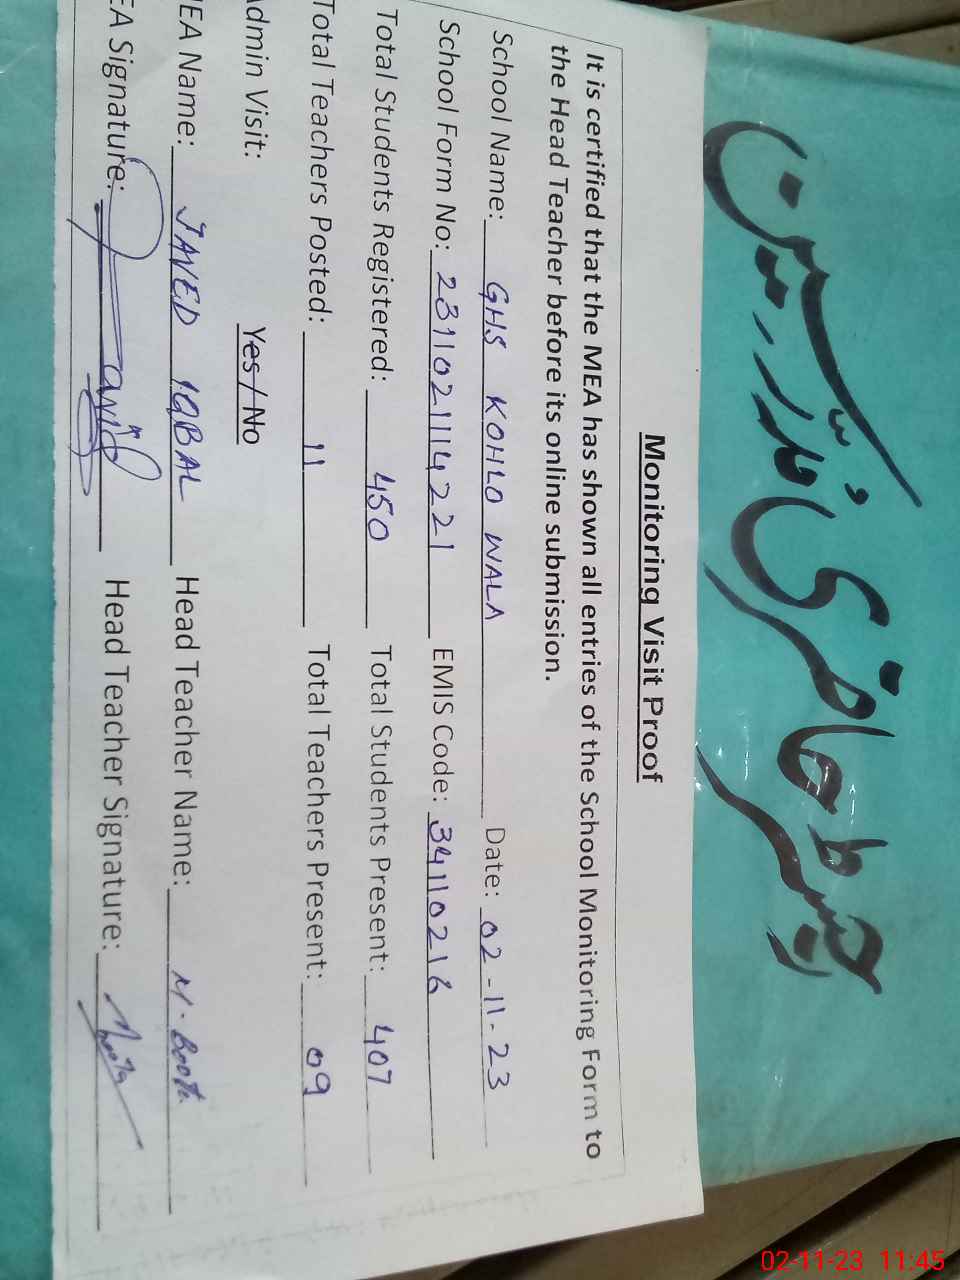 رجسٹر حاضری مدرسین
Monitoring Visit Proof
It is certified that the MEA has shown all entries of the School Monitoring Form to
the Head Teacher before its online submission.
School Name: GHS KOHLO WALA Date: 02-11-23
School Form No: 2311021114221 EMIS Code: 34110216
Total Students Registered: 450 Total Students Present: 407
Total Teachers Posted: 11 Total Teachers Present: 09
Admin Visit: Yes / No
MEA Name: JAVED IQBAL Head Teacher Name: M. Boota
EA Signature: Head Teacher Signature: Mboota
02-11-23 11:45